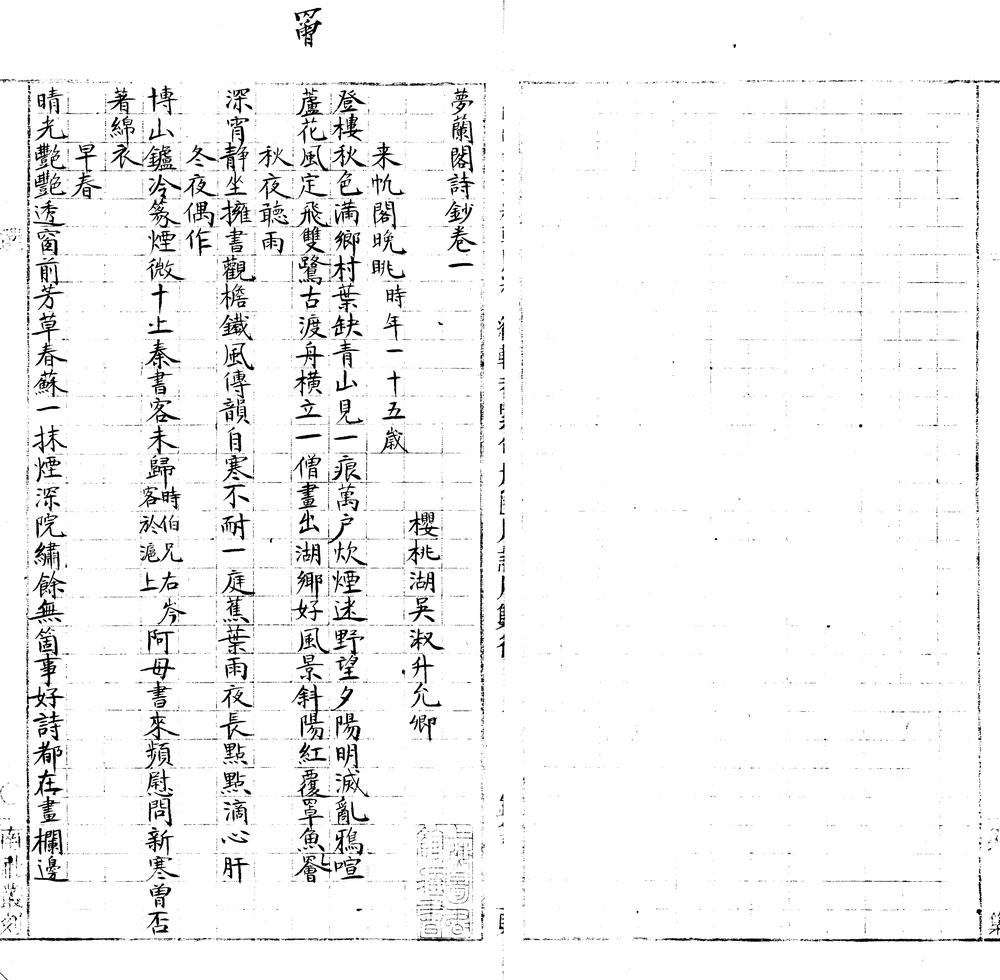 罾
夢蘭閣詩鈔卷一
櫻桃湖吳淑升允卿
来帆閣晚眺時年一十五歲
登樓秋色滿鄉村葉缺青山見一痕萬户炊煙迷野望夕陽明滅亂鴉喧
蘆花風定飛雙鷺古渡舟橫立一僧畫出湖鄉好風景斜陽紅覆罩魚罾
秋夜聽雨
深宵静坐擁書觀檐鐵風傳韻自寒不耐一庭蕉葉雨夜長點點滴心肝
冬夜偶作
博山鑪冷篆煙微十上秦書客未歸時伯兄右岑客於滬上阿母書來頻慰問新寒曾否
著綿衣
早春
晴光艷艷透窗前芳草春蘇一抹煙深院繡餘無箇事好詩都在畫欄邊
南 叢刻